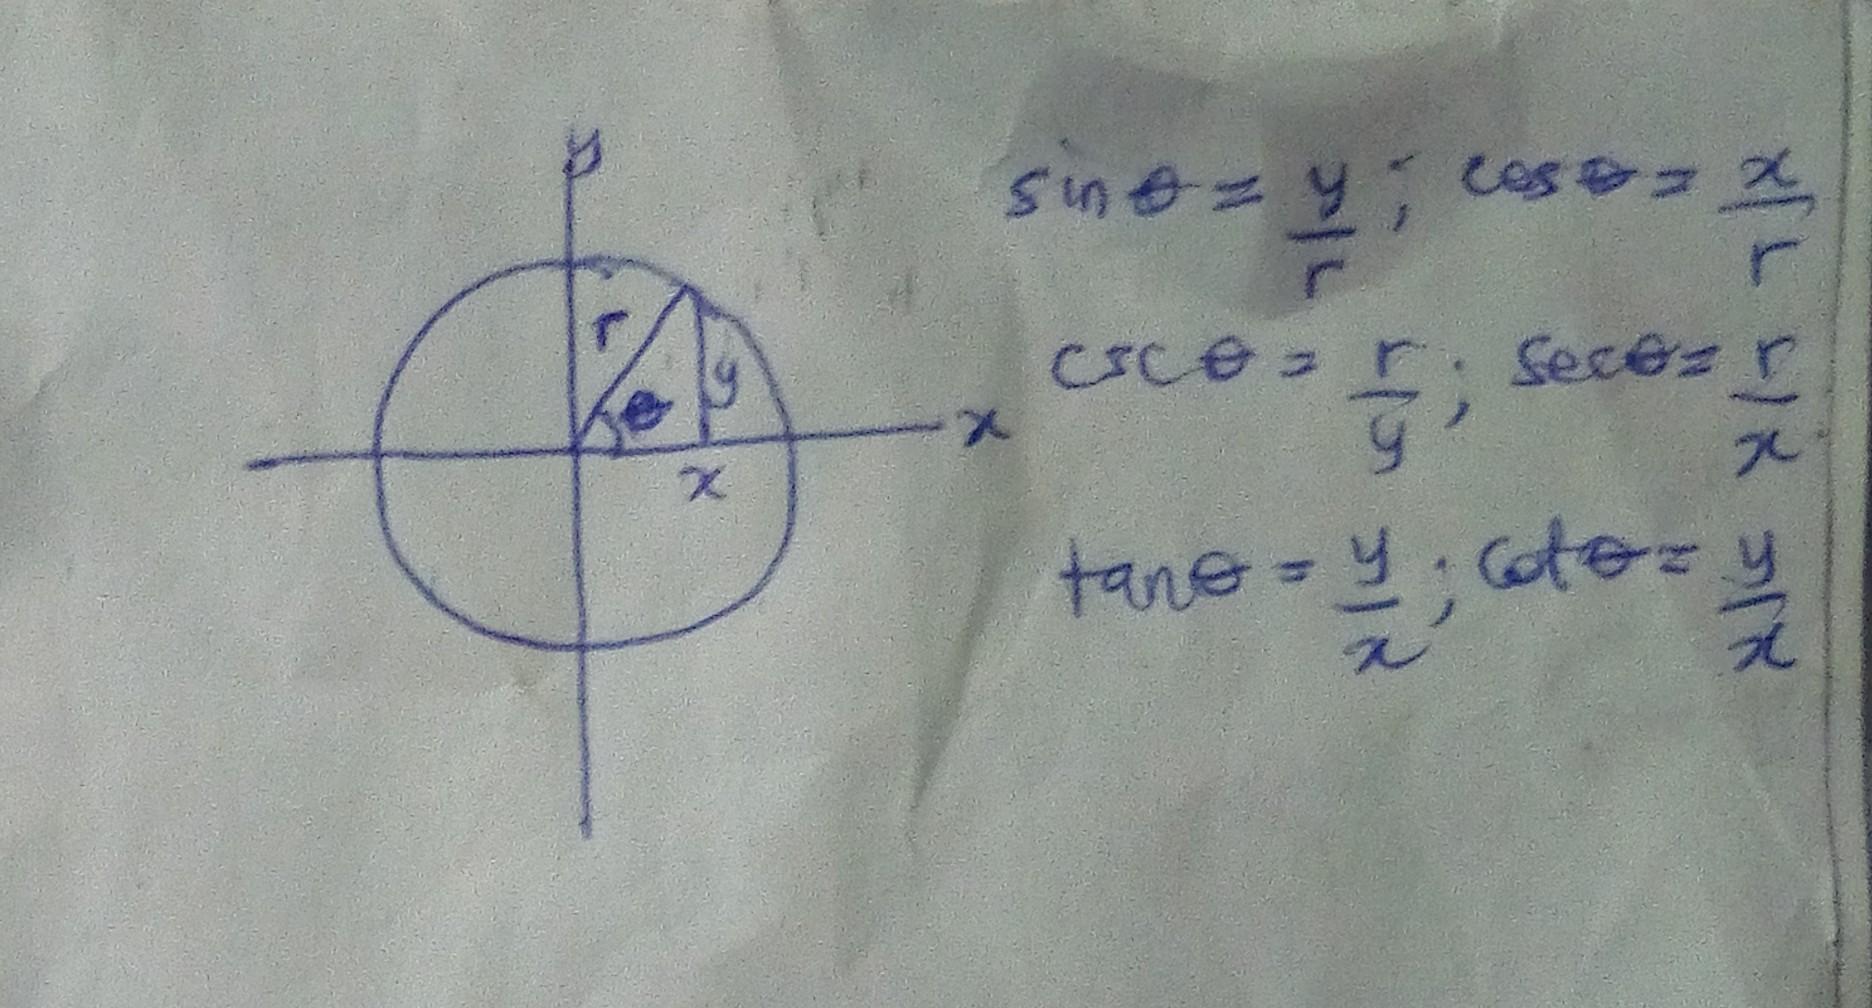 y
r
θ
y
x
x
sin θ = y/r ; cos θ = x/r
csc θ = r/y ; sec θ = r/x
tan θ = y/x ; cot θ = y/x